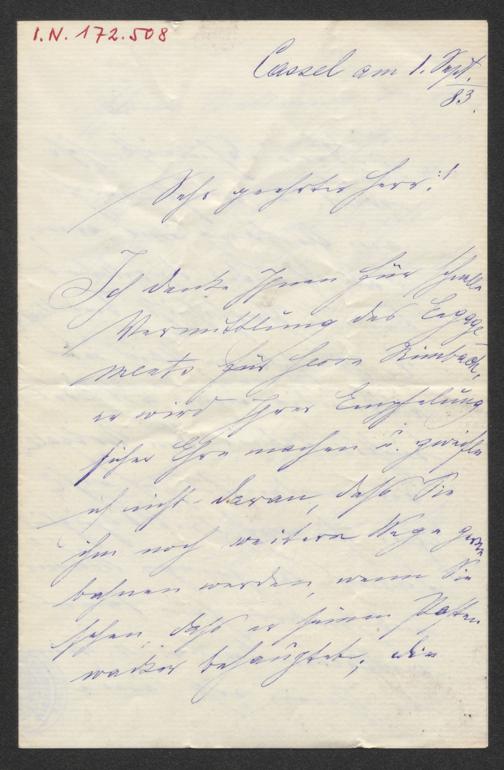 I.N. 172.508
Cassel am 1. Sept.
83.
Sehr geehrter Herr!
Ich danke Ihnen für schnelle
Vermittlung des Engage
ments für Herrn
er wird Ihrer Empfehlung
sicher Ehre machen u. zweifle
ich nicht daran, daß Sie
ihm noch weitere Wege gerne
bahnen werden, wenn Sie
sehen, daß er seinen Posten
wacker behauptet; die